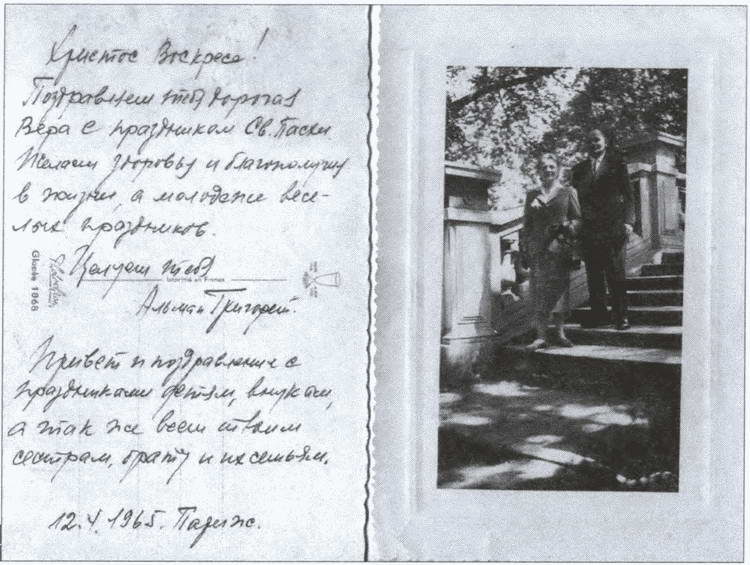 Христос Воскресе!
Поздравляем тебя дорогая
Вера с праздником Св. Пасхи.
Желаем здоровья и благополучия
в жизни, а молодежи весе-
лых праздников.
Целуем тебя
Григорий.
Привет и поздравление с
праздниками детям, внукам,
а так же всем твоим
сестрам, брату и их семьям.
12.4.1965. Париж.
Glacés 1868
Imprimé en France